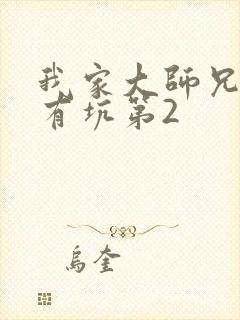 我家大師兄
有坑第2
烏奎